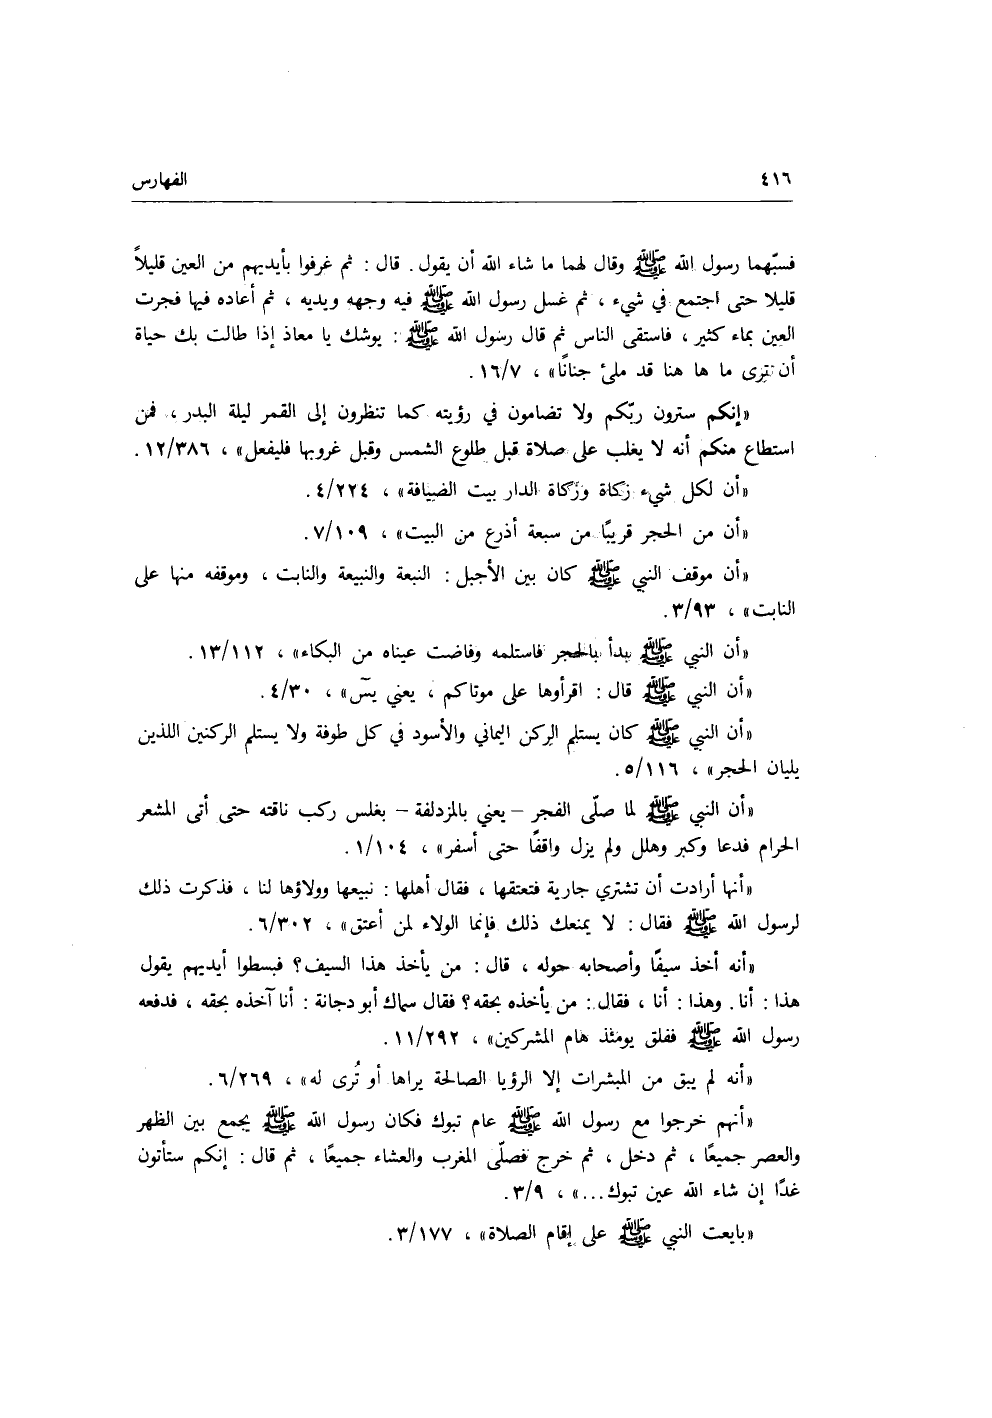 ٤١٦
الفهارس
فسبّهما رسول الله ﷺ وقال لهما ما شاء الله أن يقول. قال : ثم غرفوا بأيديهم من العين قليلاً
قليلا حتى اجتمع في شيء ، ثم غسل رسول الله ﷺ فيه وجهه ويديه ، ثم أعاده فيها فجرت
العين بماء كثير ، فاستقى الناس ثم قال رسول الله ﷺ : يوشك يا معاذ إذا طالت بك حياة
أن ترى ما ها هنا قد ملئ جنانًا» ، ١٦/٧.
«إنكم سترون ربّكم ولا تضامون في رؤيته كما تنظرون إلى القمر ليلة البدر ، فمن
استطاع منكم أنه لا يغلب على صلاة قبل طلوع الشمس وقبل غروبها فليفعل» ، ١٢/٣٨٦.
«أن لكل شيء زكاة وزكاة الدار بيت الضيافة» ، ٤/٢٢٤.
«أن من الحجر قريبًا من سبعة أذرع من البيت» ، ٧/١٠٩.
«أن موقف النبي ﷺ كان بين الأجبل : النبعة والنبيعة والنابت ، وموقفه منها على
النابت» ، ٣/٩٣.
«أن النبي ﷺ بدأ بالحجر فاستلمه وفاضت عيناه من البكاء» ، ١٣/١١٢.
«أن النبي ﷺ قال : اقرأوها على موتاكم ، يعني يسٓ» ، ٤/٣٠.
«أن النبي ﷺ كان يستلم الركن اليماني والأسود في كل طوفة ولا يستلم الركنين اللذين
يليان الحجر» ، ٥/١١٦.
«أن النبي ﷺ لما صلّى الفجر – يعني بالمزدلفة – بغلس ركب ناقته حتى أتى المشعر
الحرام فدعا وكبر وهلل ولم يزل واقفًا حتى أسفر» ، ١/١٠٤.
«أنها أرادت أن تشتري جارية فتعتقها ، فقال أهلها : نبيعها وولاؤها لنا ، فذكرت ذلك
لرسول الله ﷺ فقال : لا يمنعك ذلك فإنما الولاء لمن أعتق» ، ٦/٣٠٢.
«أنه أخذ سيفًا وأصحابه حوله ، قال : من يأخذ هذا السيف؟ فبسطوا أيديهم يقول
هذا : أنا. وهذا : أنا ، فقال : من يأخذه بحقه؟ فقال سماك أبو دجانة : أنا آخذه بحقه ، فدفعه
رسول الله ﷺ ففلق يومئذ هام المشركين» ، ١١/٢٩٢.
«أنه لم يبق من المبشرات إلا الرؤيا الصالحة يراها أو تُرى له» ، ٦/٢٦٩.
«أنهم خرجوا مع رسول الله ﷺ عام تبوك فكان رسول الله ﷺ يجمع بين الظهر
والعصر جميعًا ، ثم دخل ، ثم خرج فصلّى المغرب والعشاء جميعًا ، ثم قال : إنكم ستأتون
غدًا إن شاء الله عين تبوك...» ، ٣/٩.
«بايعت النبي ﷺ على إقام الصلاة» ، ٣/١٧٧.